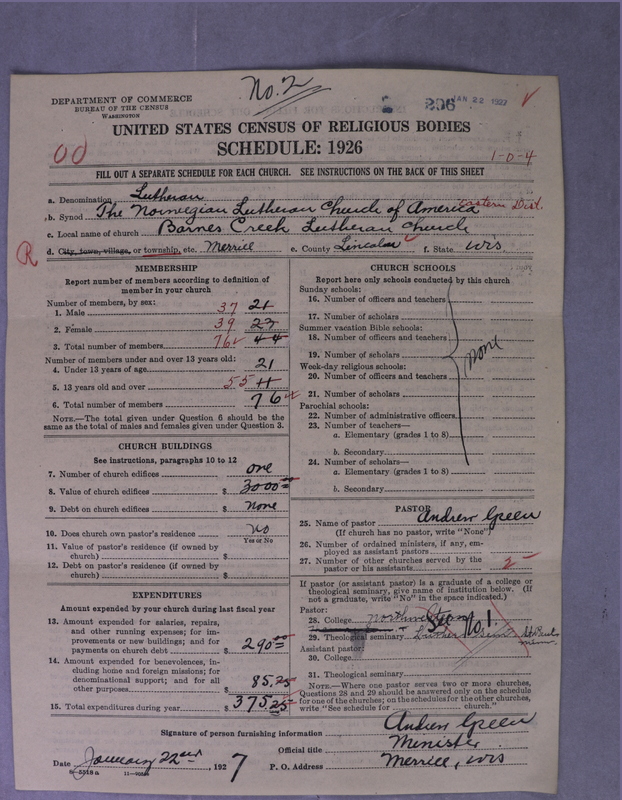 No. 2
DEPARTMENT OF COMMERCE
BUREAU OF THE CENSUS
WASHINGTON
296 JAN 22 1927
UNITED STATES CENSUS OF RELIGIOUS BODIES
SCHEDULE: 1926
1-0-4
FILL OUT A SEPARATE SCHEDULE FOR EACH CHURCH. SEE INSTRUCTIONS ON THE BACK OF THIS SHEET
a. Denomination Lutheran
b. Synod The Norwegian Lutheran Church of America Eastern Dist.
c. Local name of church Barnes Creek Lutheran Church
R
d. City, town, village, or township, etc. Merrill e. County Lincoln f. State Wis
MEMBERSHIP
Report number of members according to definition of
member in your church
Number of members, by sex:
1. Male 37 21
2. Female 39 23
3. Total number of members 76 44
Number of members under and over 13 years old:
4. Under 13 years of age 21
5. 13 years old and over 55 11
6. Total number of members 76
NOTE.—The total given under Question 6 should be the
same as the total of males and females given under Question 3.
CHURCH BUILDINGS
See instructions, paragraphs 10 to 12
7. Number of church edifices one
8. Value of church edifices $ 3000 00
9. Debt on church edifices $ None
10. Does church own pastor's residence? No
Yes or No
11. Value of pastor's residence (if owned by
church) $
12. Debt on pastor's residence (if owned by
church) $
EXPENDITURES
Amount expended by your church during last fiscal year
13. Amount expended for salaries, repairs,
and other running expenses; for im-
provements or new buildings; and for
payments on church debt $ 290 00
14. Amount expended for benevolences, in-
cluding home and foreign missions; for
denominational support; and for all
other purposes $ 85,25
15. Total expenditures during year $ 375,25
CHURCH SCHOOLS
Report here only schools conducted by this church
Sunday schools:
16. Number of officers and teachers
17. Number of scholars
Summer vacation Bible schools:
18. Number of officers and teachers
19. Number of scholars
None
Week-day religious schools:
20. Number of officers and teachers
21. Number of scholars
Parochial schools:
22. Number of administrative officers
23. Number of teachers—
a. Elementary (grades 1 to 8)
b. Secondary
24. Number of scholars—
a. Elementary (grades 1 to 8)
b. Secondary
PASTOR
25. Name of pastor Andrew Green
(If church has no pastor, write "None")
26. Number of ordained ministers, if any, em-
ployed as assistant pastors
27. Number of other churches served by the
pastor or his assistants 2
If pastor (or assistant pastor) is a graduate of a college or
theological seminary, give name of institution below. (If
not a graduate, write "No" in the space indicated.)
Pastor:
28. College
No. 1.
29. Theological seminary Luther St Paul
Minn.
Assistant pastor:
30. College
31. Theological seminary
NOTE.—Where one pastor serves two or more churches,
Questions 28 and 29 should be answered only on the schedule
for one of the churches; on the schedules for the other churches,
write "See schedule for church."
Signature of person furnishing information Andrew Green
Official title Minister
Date January 22nd, 1927 P. O. Address Merrill, Wis
8-5518 a